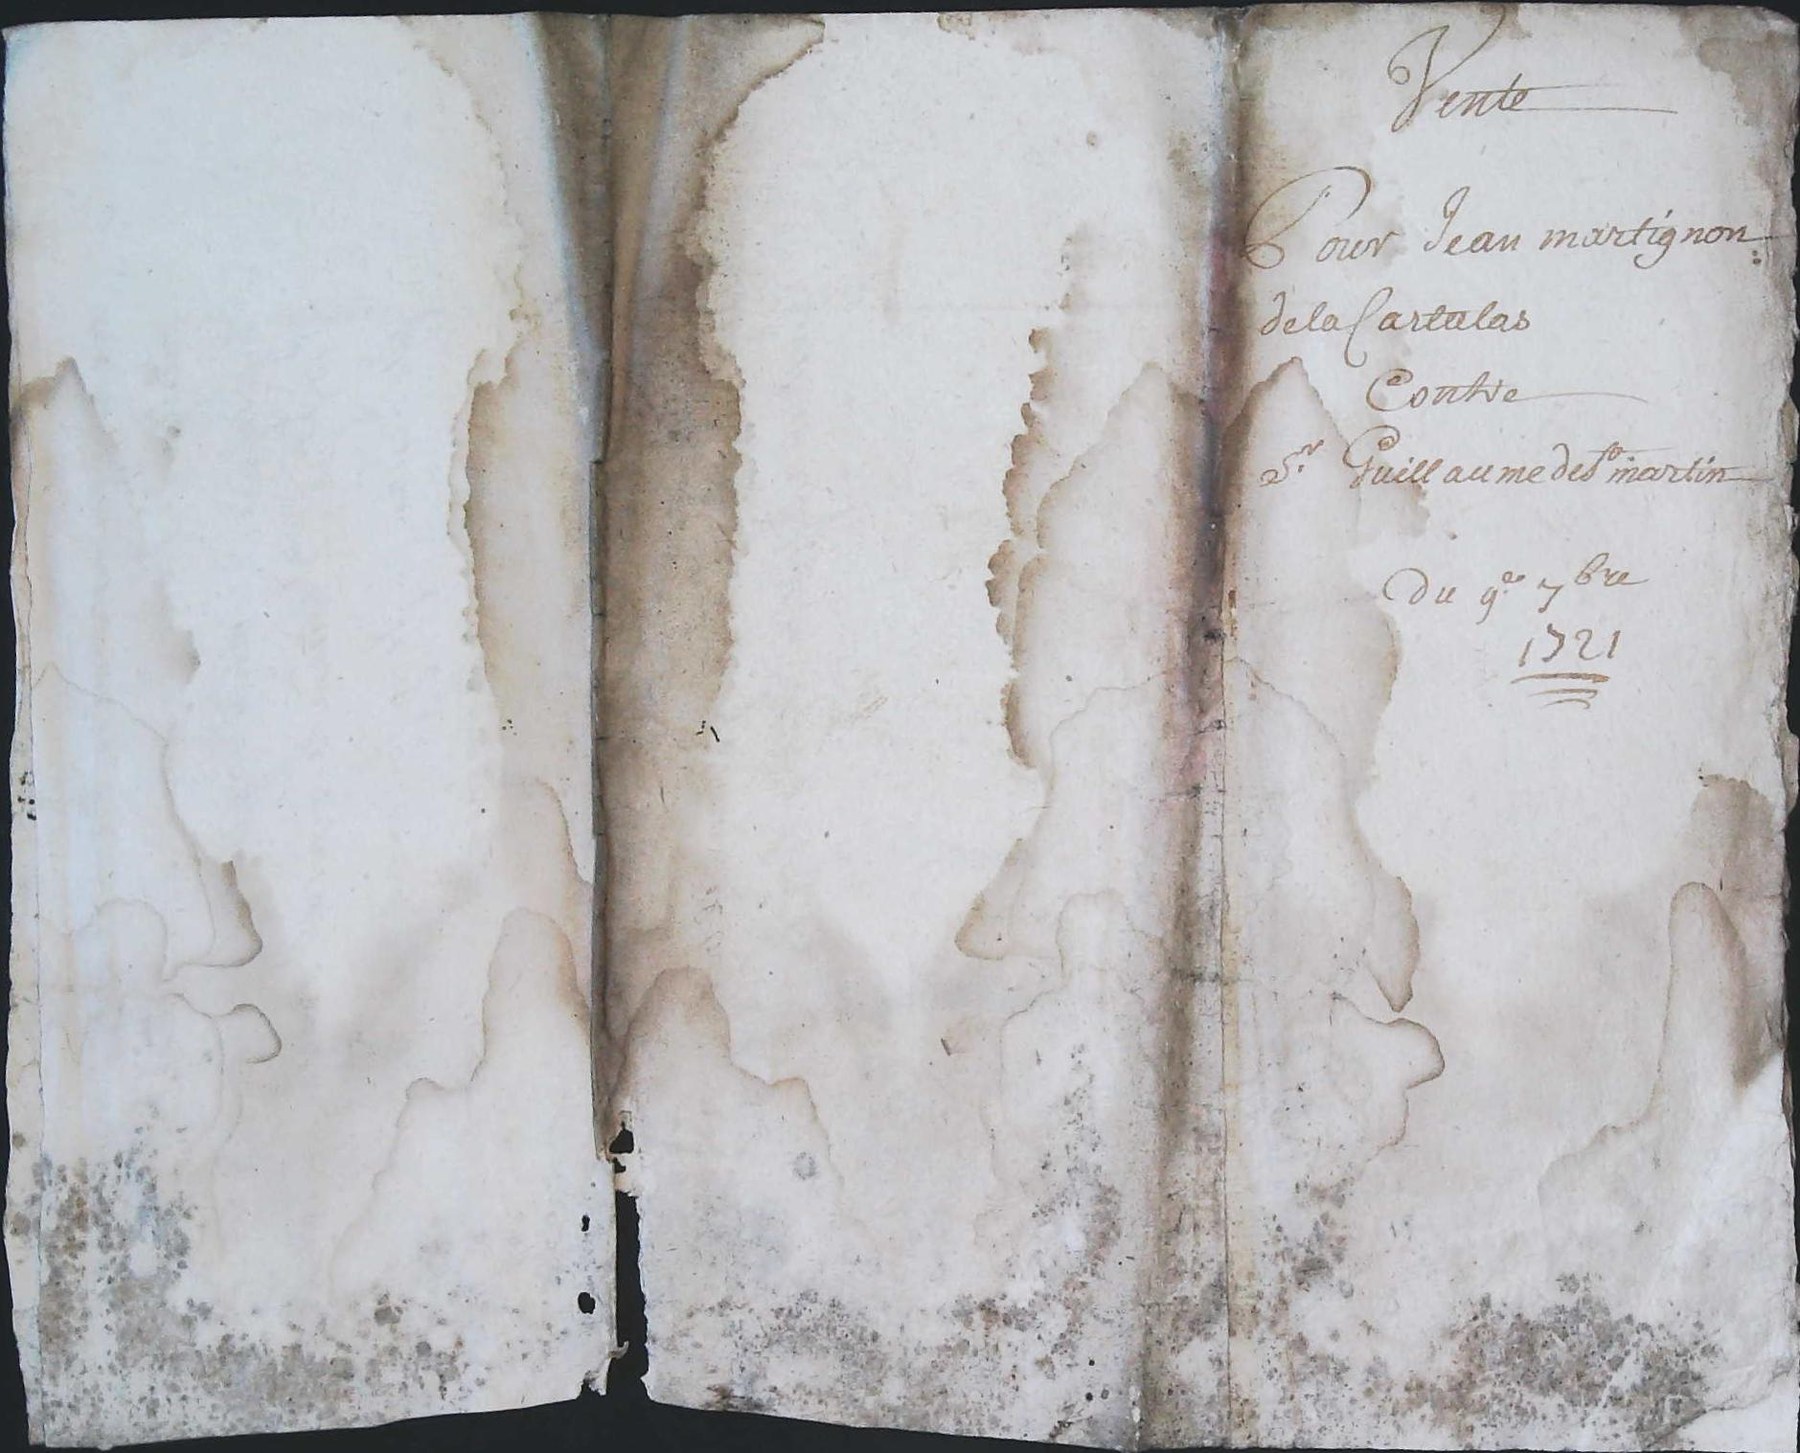 Vente
Pour Jean martignon
de la Cartalas
Contre
Sr Guillaume de St martin
Du 9e 7bre
1721